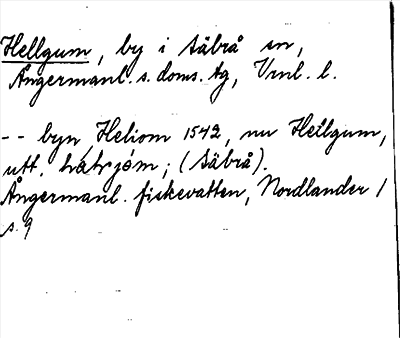 Hellgum, by i Säbrå sn,
Ångermanl. s. doms. tg, Vrnl. l.
-- byn Heliom 1542, nu Hellgum,
utt. ; (Säbrå).
Ångermanl. fiskevatten, Nordlander 1
s. 9